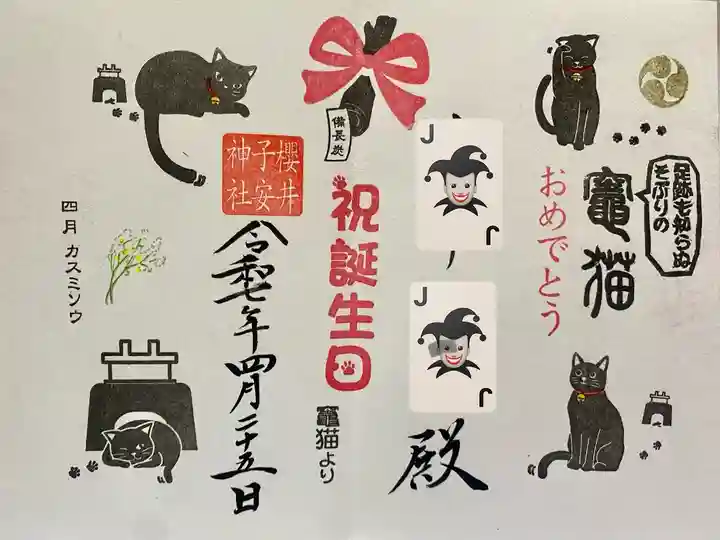 足跡も知らぬ
そぶりの
竈猫
おめでとう
殿
J
J
J
J
備長炭
祝誕生日
竈猫より
櫻井
子安
神社
令和七年四月二十五日
四月 カスミソウ